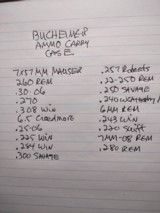 BUCHEIMER
AMMO CARRY
CASE
7X57 MM MAUSER
.260 REM
.30-06
.270
.308 WIN
6.5 Creedmore
.25-06
.225 WIN
.264 WIN
.300 SAVAGE
.257 Roberts
.22-250 REM
.250 SAVAGE
.240 WEATHERBY
6MM REM
.243 WIN
.220 Swift
7MM-08 REM
.280 REM